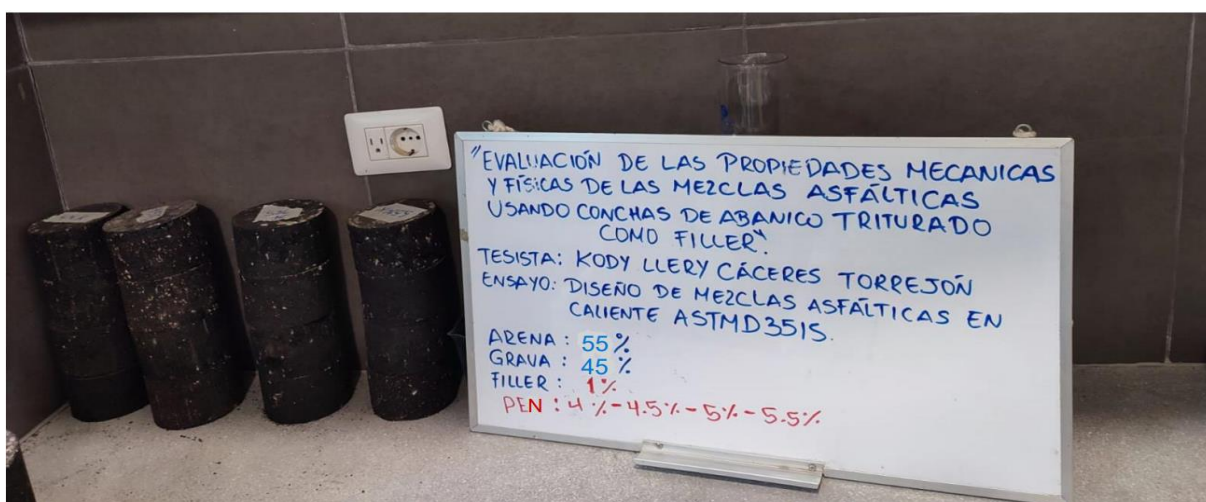 "EVALUACIÓN DE LAS PROPIEDADES MECANICAS
Y FÍSICAS DE LAS MEZCLAS ASFÁLTICAS
USANDO CONCHAS DE ABANICO TRITURADO
COMO FILLER".
TESISTA: KODY LLERY CÁCERES TORREJÓN
ENSAYO: DISEÑO DE MEZCLAS ASFÁLTICAS EN
CALIENTE ASTMD3515.
ARENA : 55 %
GRAVA : 45 %
FILLER : 1%
PEN : 4 %-4.5%-5%-5.5%